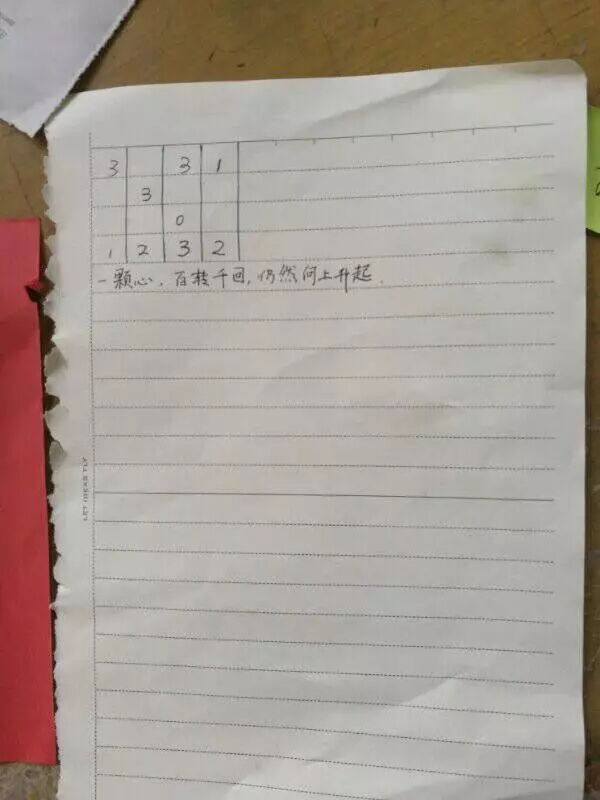 3 3 1
3
0
1 2 3 2
一颗心，百转千回，仍然向上升起.
LET IDEAS FLY